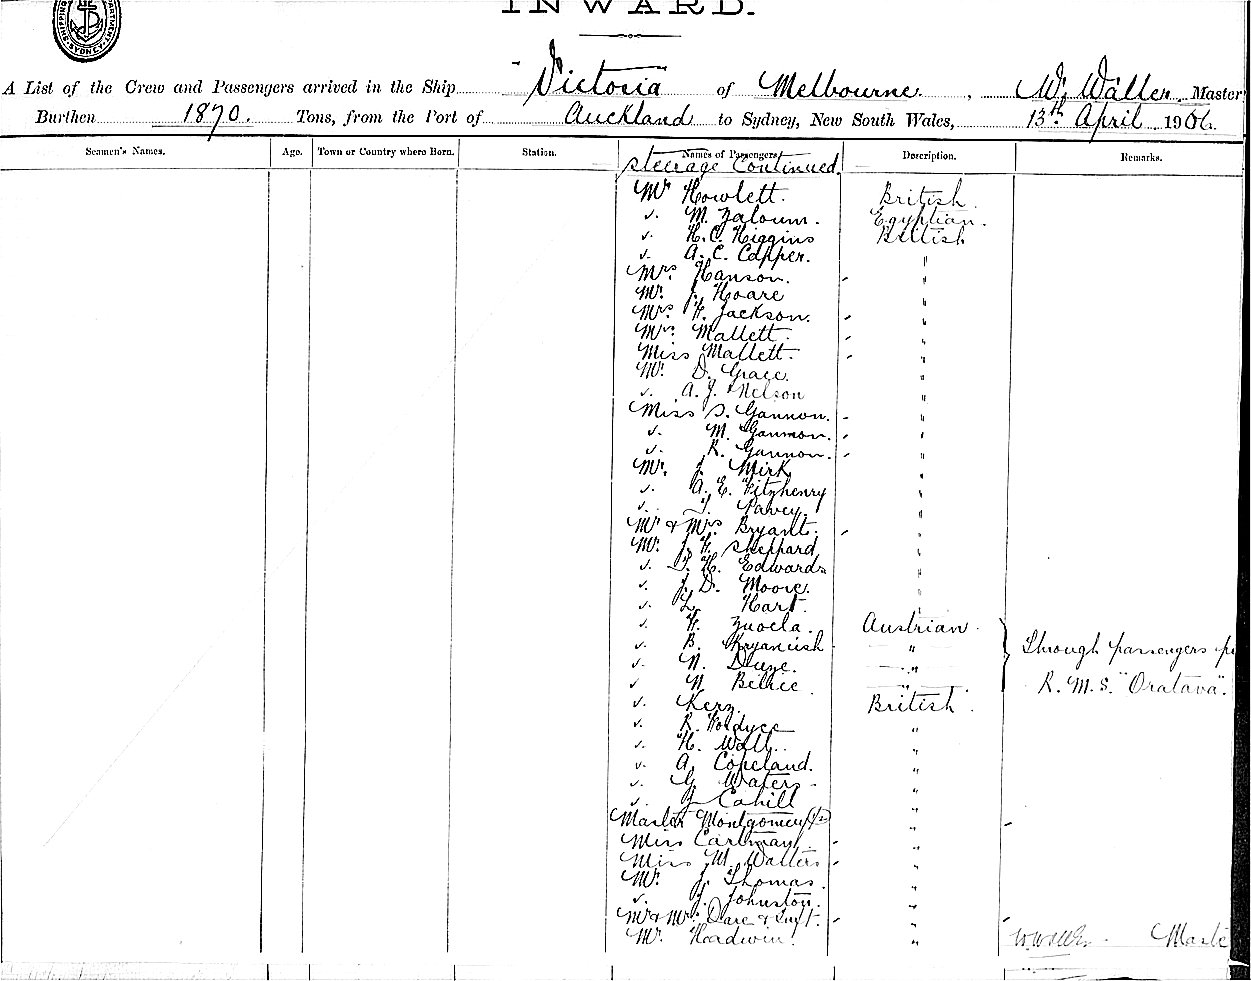 INWARD.
A List of the Crew and Passengers arrived in the Ship Victoria of Melbourne, W. Waller Master
Burthen 1870. Tons, from the Port of Auckland to Sydney, New South Wales, 13th April 1906.
Seamen's Names. Age. Town or Country where Born. Station. Names of Passengers Description. Remarks.
Steerage Continued
Mr Howlett. British.
v. M. Zaloum. Egyptian.
v. H. C. Higgins British
v. A. C. Capper. "
Mrs Hanson. "
Mr. J. Hoare "
Mrs. H. Jackson. "
Mrs Mallett. "
Miss Mallett. "
Mr. D. Grace. "
v. A. J. Nelson "
Miss S. Gannon. "
v. M. Gannon. "
v. K. Gannon. "
Mr. J. Mirk "
v. A. E. Fitzhenry "
v. Pavey. "
Mr & Mrs Bryant. "
Mr. J. H. Sheppard "
v. T. H. Edwards "
v. J. D. Moore. "
v. L. Hart. "
v. Austrian.
v. B. " Through passengers
v. N. "
v. N. " R. M. S. "Oratava".
v. British.
v. R. "
v. H. Wall. "
v. A. Copeland. "
v. G. Waters "
v. Cahill "
Master Montgomery "
Miss "
Miss M. Walters "
Mr. J. Thomas. "
v. J. Johnston. "
Mr & Mrs. Dare & Inft. "
Mr. Hardwin. " Maste